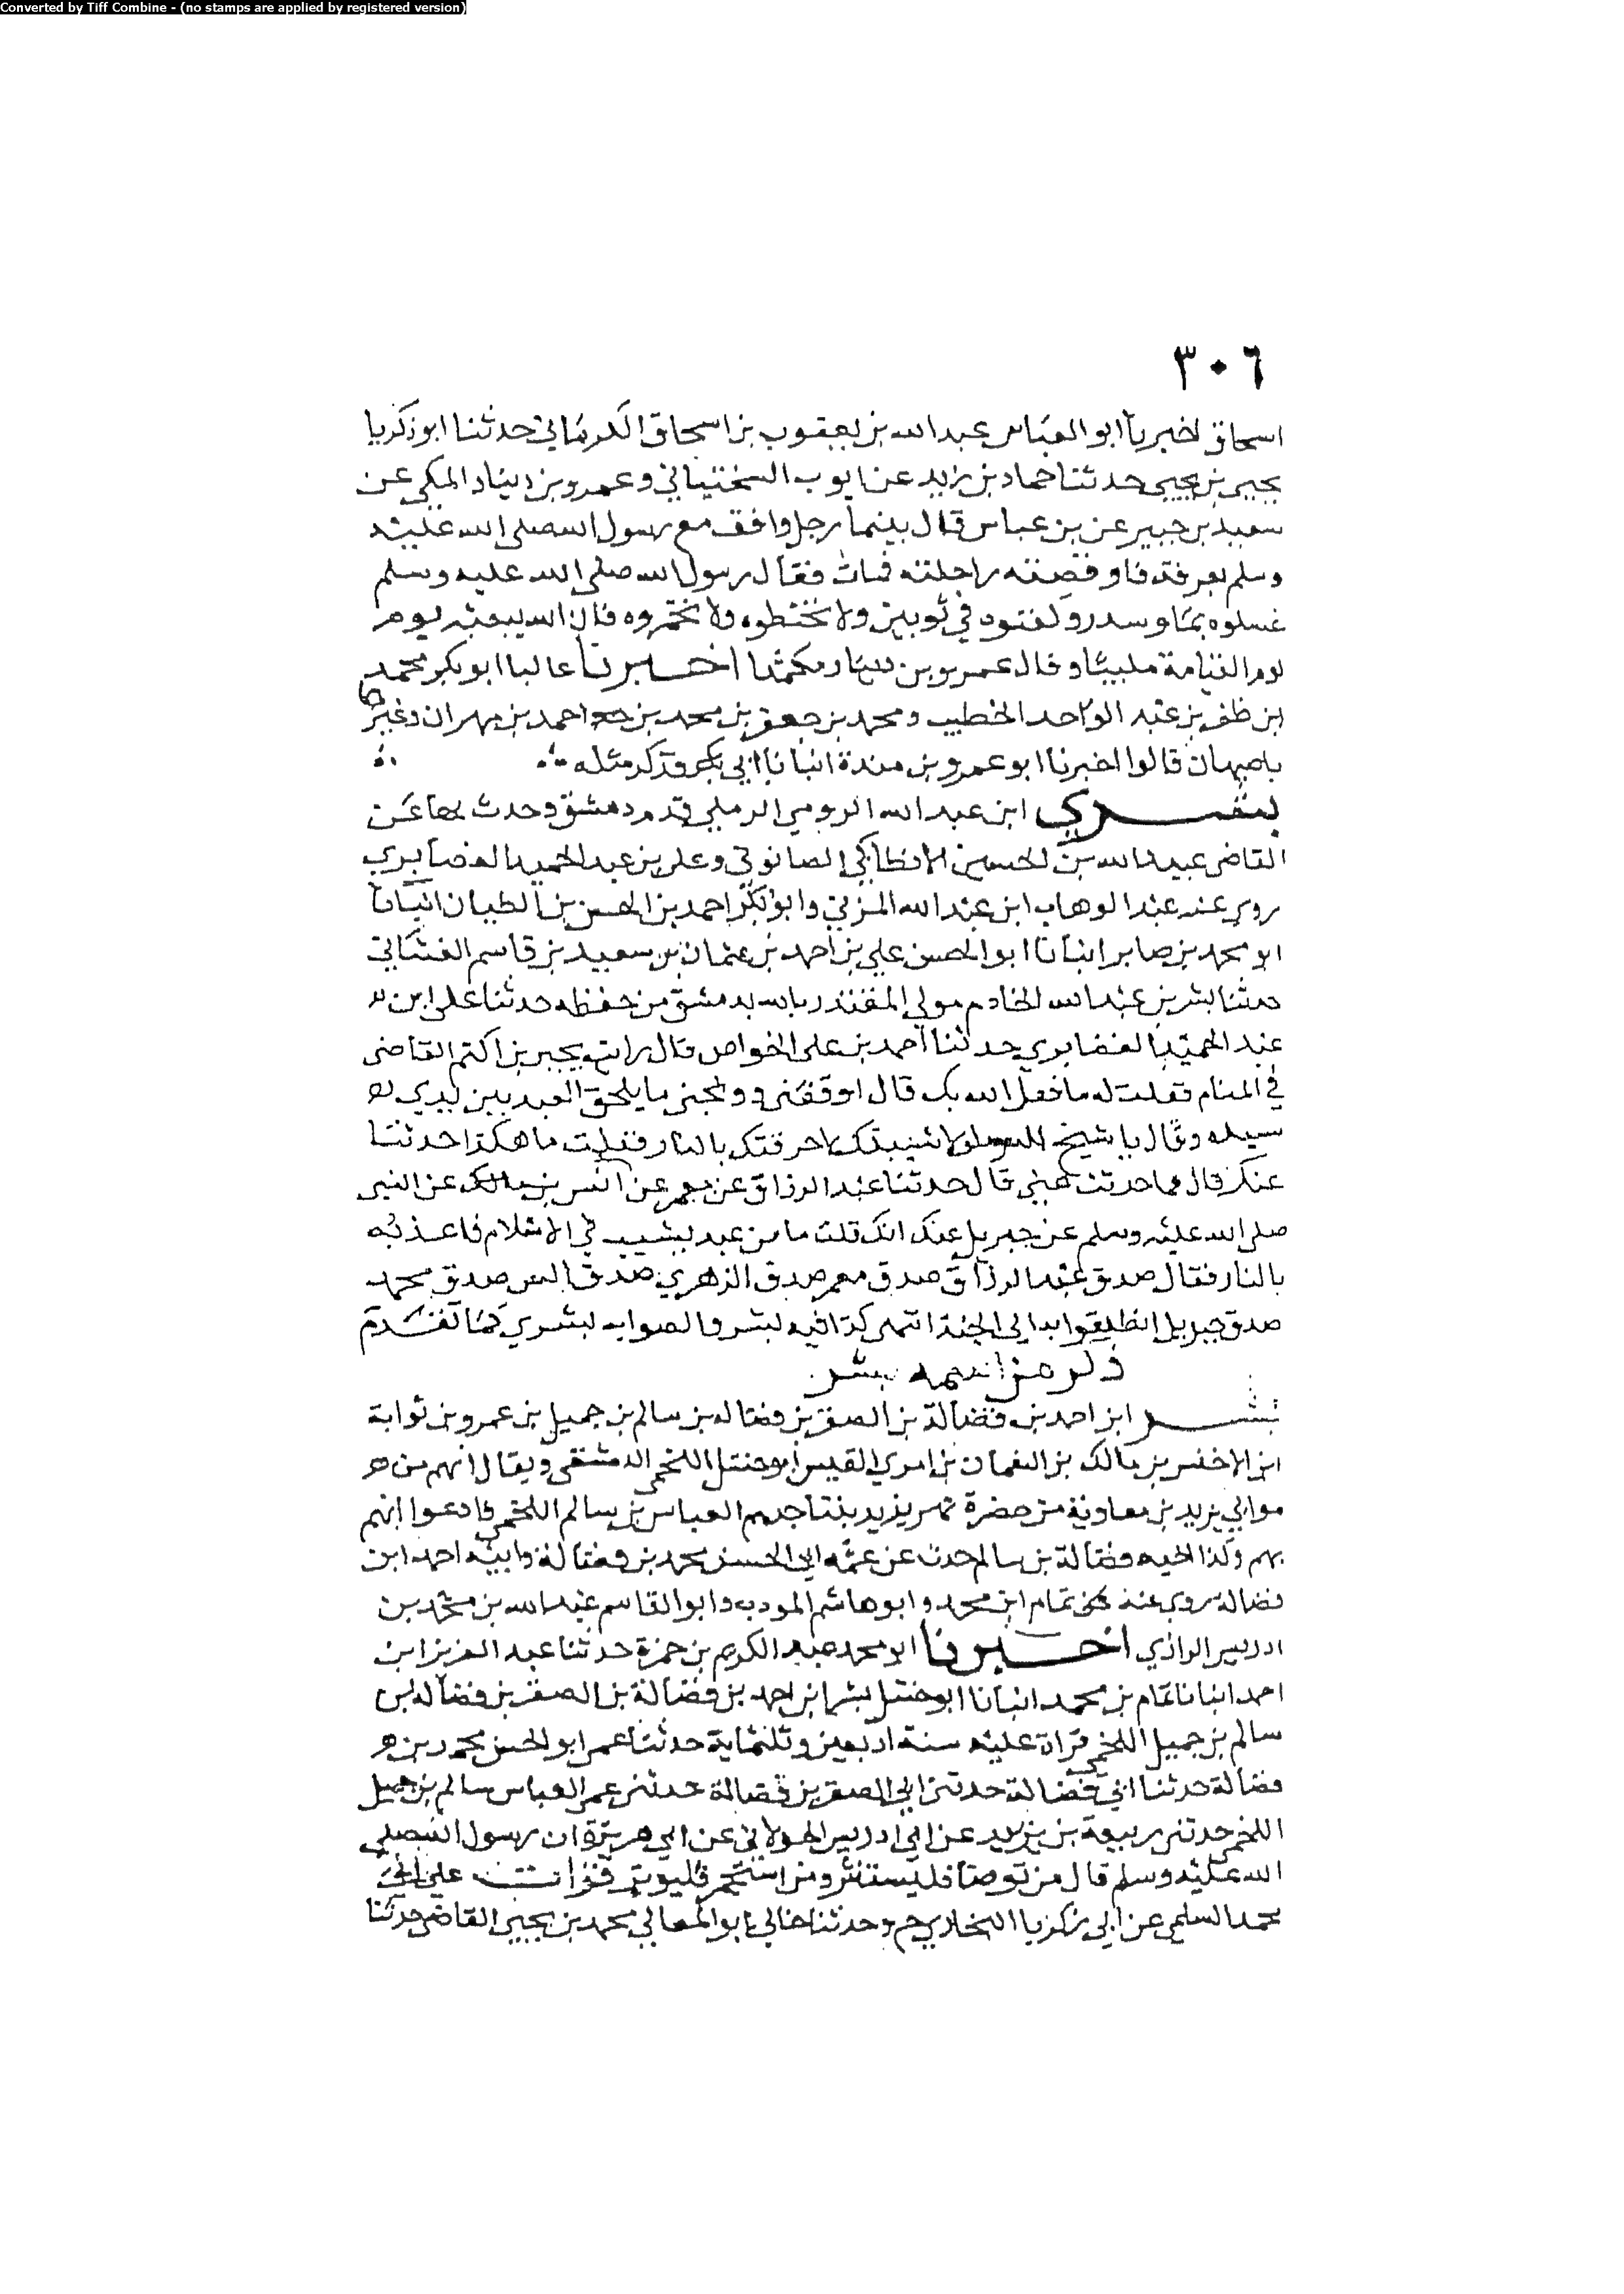 Converted by Tiff Combine - (no stamps are applied by registered version)
٣٠٦
اسحاق اخبرنا ابو العباس عبد الله بن يعقوب بن اسحاق الكرماني حدثنا ابو زكريا
يحيى بن يحيى حدثنا حماد بن زيد عن ايوب السختياني وعمرو بن دينار المكي عن
سعيد بن جبير عن بن عباس قال بينما رجل واقف مع رسول الله صلى الله عليه
وسلم بعرفة فاوقصته راحلته فمات فقال رسول الله صلى الله عليه وسلم
غسلوه بماء وسدر وكفنوه في ثوبين ولا تحنطوه ولا تخمروه فان الله يبعثه يوم
يوم القيامة ملبيا وقال عمرو بن دينار اخبرنا عاليا ابو بكر محمد
ابن ظفر بن عبد الواحد الخطيب ومحمد بن جعفر بن محمد بن احمد بن مهران وغيرها
باصبهان قالوا اخبرنا ابو عمرو بن مندة انبانا ابي فذكر مثله
بشرى ابن عبد الله الرومي الرملي قدم دمشق وحدث بها عن
القاضي عبيد الله بن الحسين الانطاكي الصابوني وعلي بن عبد الحميد الغضايري
روى عنه عبد الوهاب ابن عبد الله المزني وابو بكر احمد بن الحسن بن الطيان انبانا
ابو محمد بن صابر انبانا ابو الحسن علي بن احمد بن عثمان بن سعيد بن قاسم الغساني
حدثنا بشر بن عبد الله الخادم مولى المقتدر بالله بدمشق من حفظه حدثنا علي ابن
عبد الحميد الغضايري حدثنا احمد بن علي الخواص قال رايت يحيى بن اكثم القاضي
في المنام فقلت له ما فعل الله بك قال اوقفني ما يلحق العبد بين يدي
سيده وقال يا شيخ السو لولا شيبتك لاحرقتك بالنار فقلت ما هكذا حدثنا
عنك قال فما حدثت عني قال حدثنا عبد الرزاق عن معمر عن انس بن مالك عن النبي
صلى الله عليه وسلم عن جبريل عنك انك قلت ما من عبد يشيب في الاسلام فاعذبه
بالنار فقال صدق عبد الرزاق صدق معمر صدق الزهري صدق انس صدق محمد
صدق جبريل انطلقوا به الى الجنة انتهى كذا فيه بشر والصواب بشرى كما تقدم
ذكر من اسمه بشر
بشر ابن احمد بن فضالة بن الصقر بن فضاله بن سالم بن جميل بن عمرو بن ثوابة
ابن الاخنس بن مالك بن النعمان بن امري القيس ابو حنتل اللخمي الدمشقي ويقال انهم من
موالي يزيد بن معاوية من حضرة نهر يزيد بنتاجدهم العباس بن سالم اللخمي فادعوا انهم
بهم وكذا فضالة بن سالم حدث عن عمه ابي الحسن محمد بن فضالة وابيه احمد ابن
فضالة روى عنه تمام ابن محمد وابو هاشم المودب وابو القاسم عبد الله بن محمد بن
ادريس الرازي اخبرنا ابو محمد عبد الكريم بن حمزة حدثنا عبد العزيز ابن
احمد انبانا تمام بن محمد انبانا ابو حنتل بشر ابن احمد بن فضالة بن الصقر بن فضاله بن
سالم بن جميل اللخمي قراة عليه سنة اربعين وثلثماية حدثنا عمي ابو الحسن محمد بن
فضالة حدثنا ابي فضالة حدثني ابي الصقر بن فضالة حدثني عمي العباس سالم بن جميل
اللخمي حدثني ربيعة بن يزيد عن ابي ادريس الخولاني عن ابي هريرة ان رسول الله صلى
الله عليه وسلم قال من توضا فليستنثر ومن استجمر فليوتر قرات على ابي
محمد السلمي عن ابي زكريا البخاري ح وحدثنا خالي ابو المعالي محمد بن يحيى القاضي حدثنا